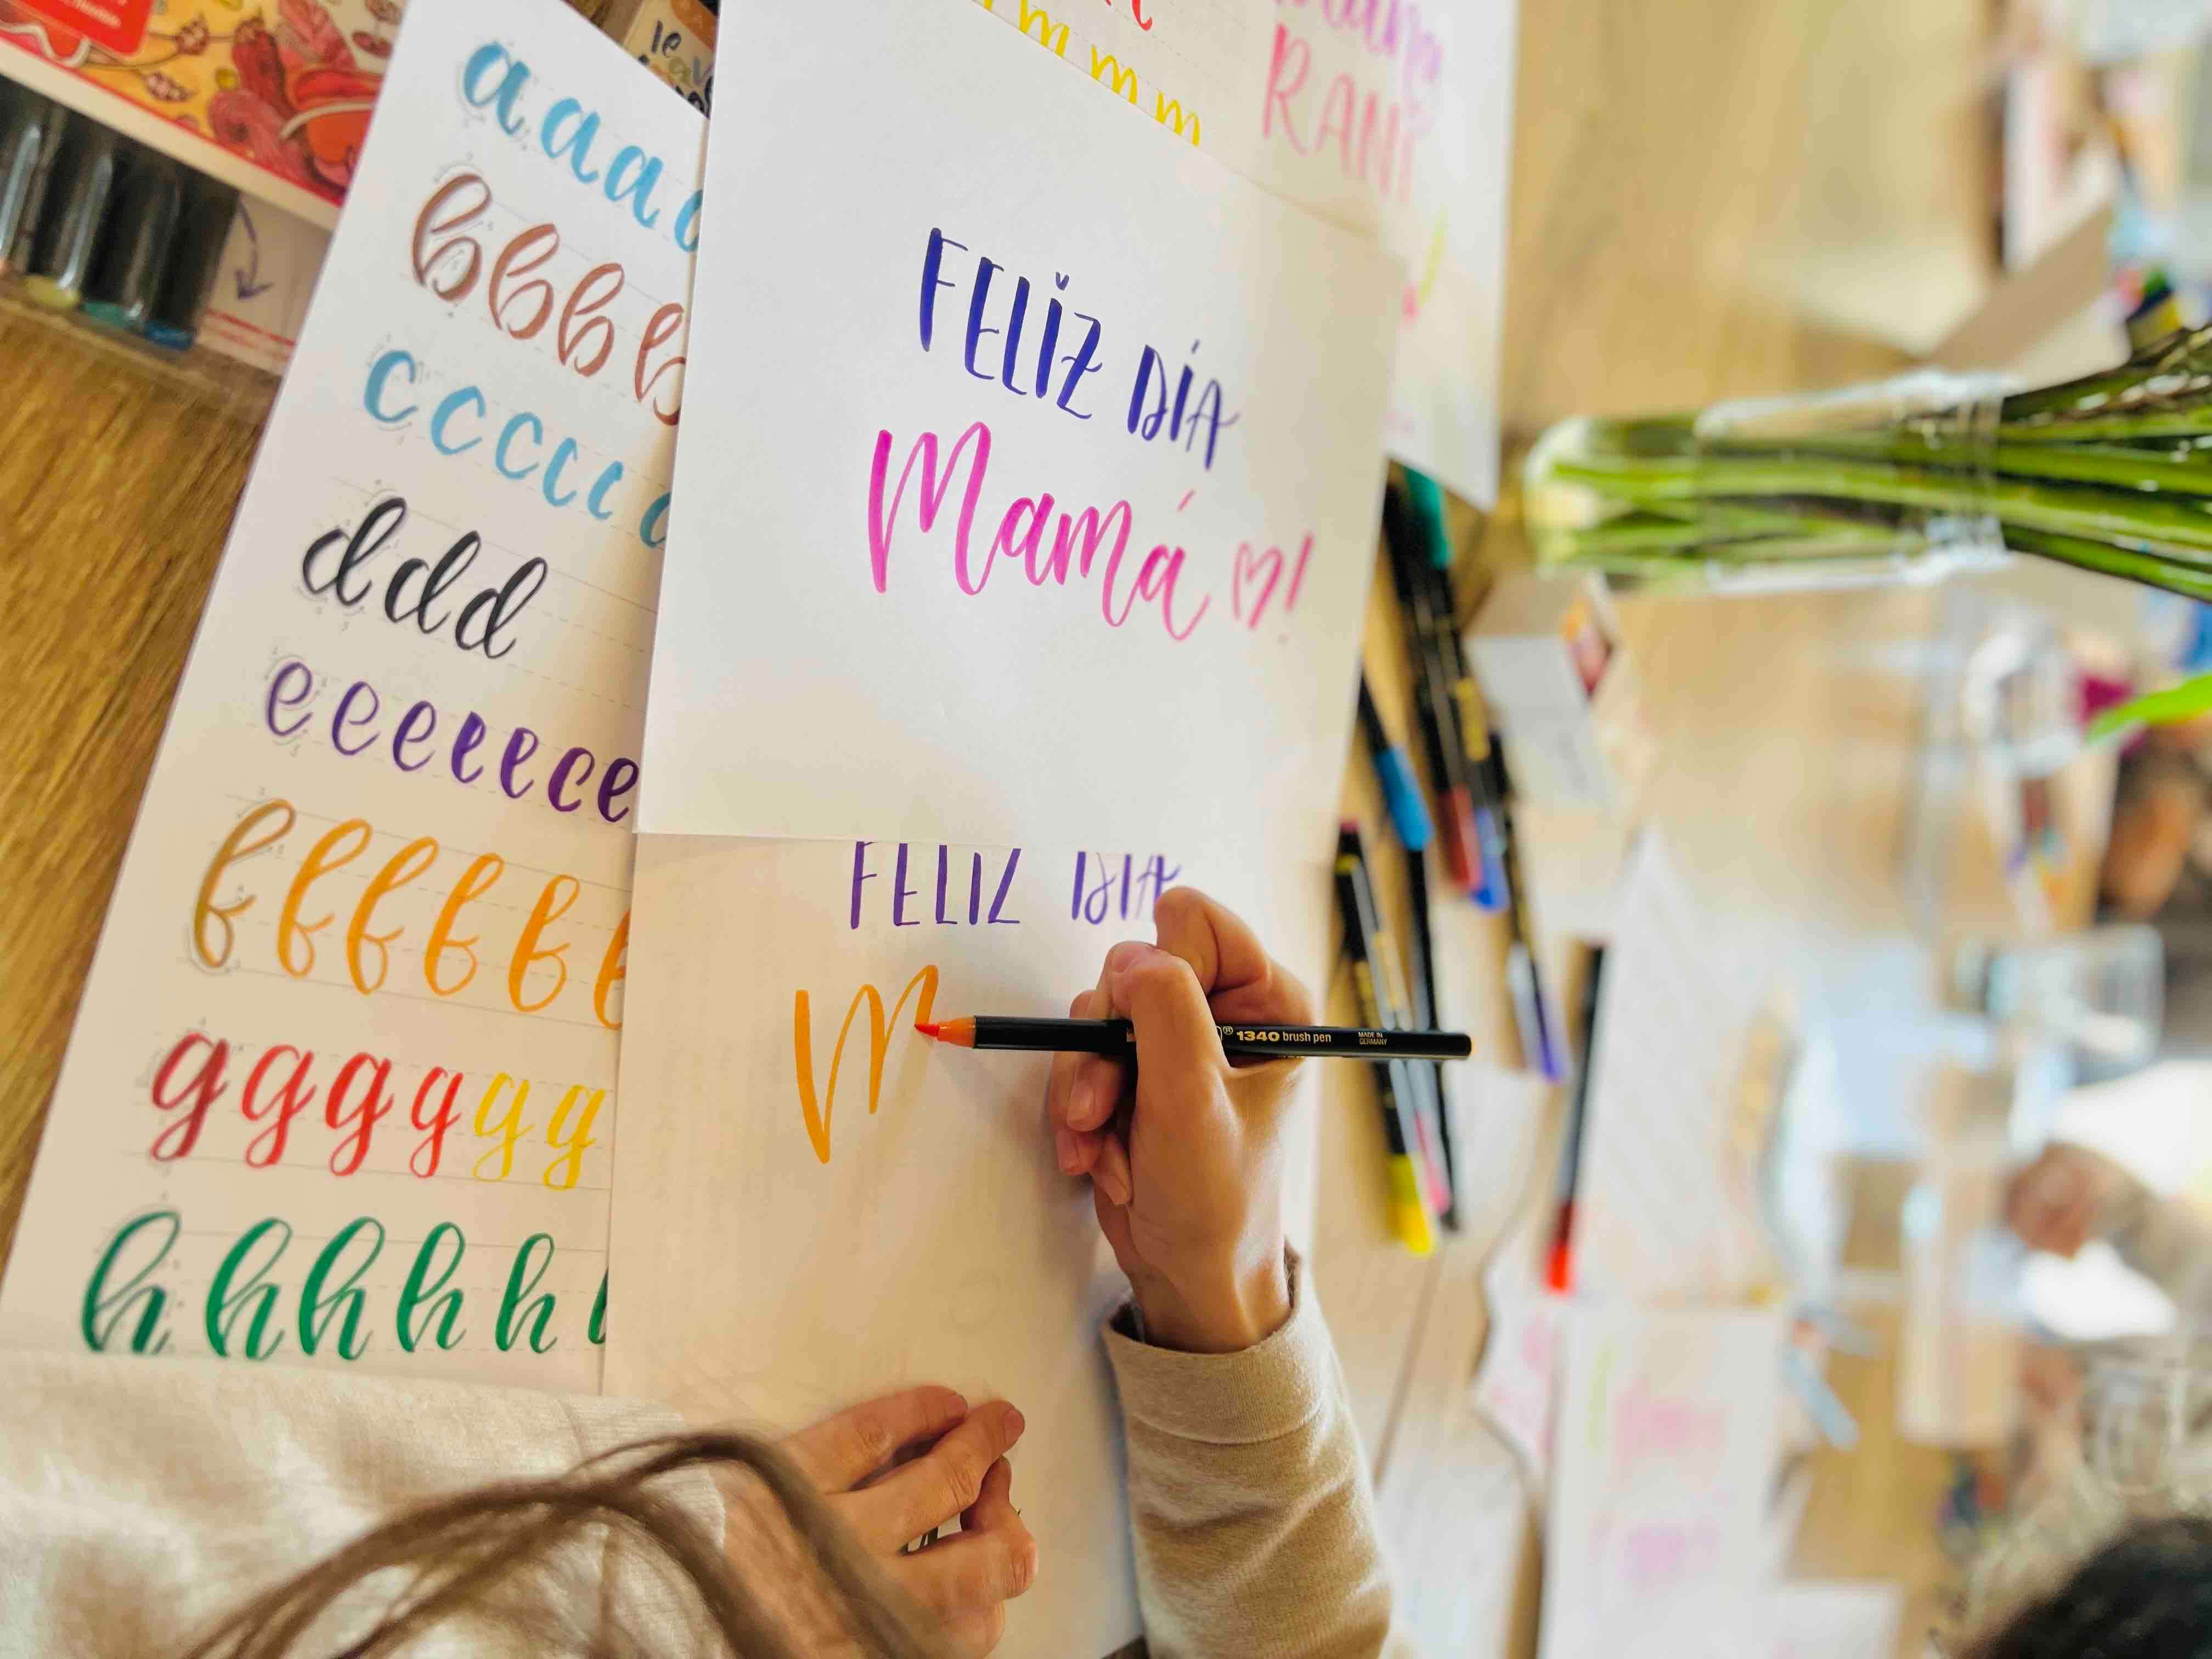 a a a
b b b b
c c c c c c
d d d
e e e e e c e
f f f f f f
g g g g g g
h h h h h
m m m
RANI
FELIZ DÍA
Mamá ♡!
FELIZ DIA
M
1340 brush pen
MADE IN
GERMANY